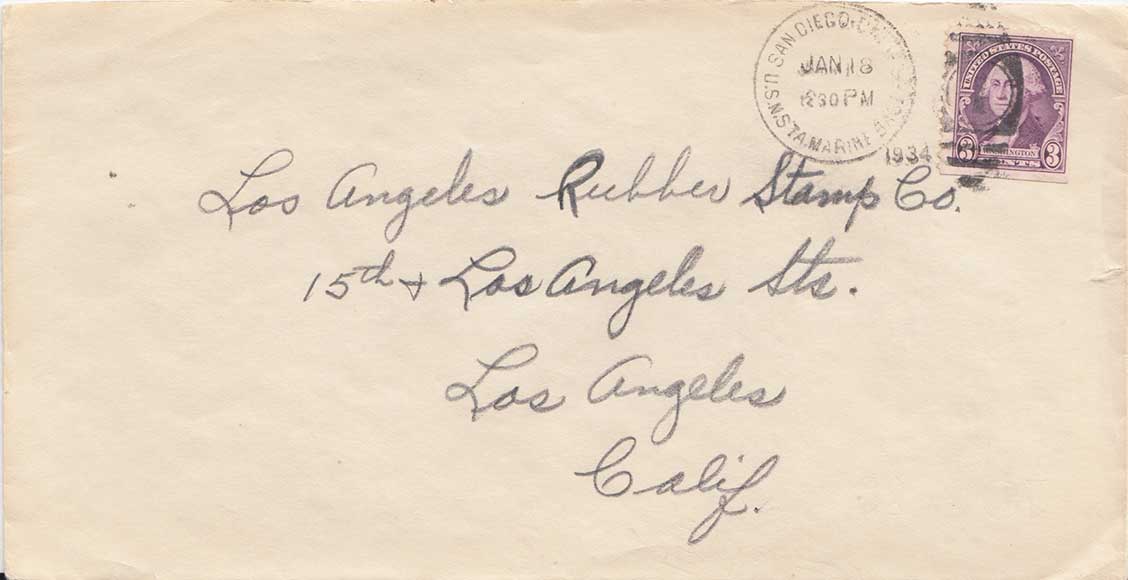 SAN DIEGO
JAN 18
1230 PM
U.S.N. STA. MARINE
1934
UNITED STATES POSTAGE
WASHINGTON
3 3
CENTS
Los Angeles Rubber Stamp Co.
15th & Los Angeles Sts.
Los Angeles
Calif.